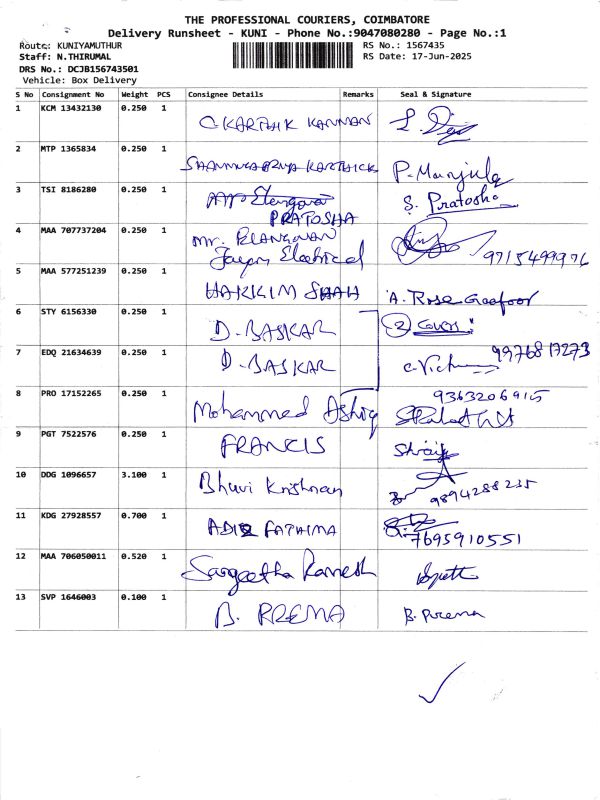 THE PROFESSIONAL COURIERS, COIMBATORE
Delivery Runsheet - KUNI - Phone No.:9047080280 - Page No.:1
Route: KUNIYAMUTHUR RS No.: 1567435
Staff: N.THIRUMAL RS Date: 17-Jun-2025
DRS No.: DCJB156743501
Vehicle: Box Delivery
S No Consignment No Weight PCS Consignee Details Remarks Seal & Signature
1 KCM 13432130 0.250 1 C.KARTHIK KANNAN
2 MTP 1365834 0.250 1 KARTHICK P. Manjula
3 TSI 8186280 0.250 1 PRATOSHA S. Pratosha
4 MAA 707737204 0.250 1 Mr. ELANGOVAN
Electrical 9715499976
5 MAA 577251239 0.250 1 HAKKIM SHAH A. Rose
6 STY 6156330 0.250 1 D. BASKAR 2 Cover
7 EDQ 21634639 0.250 1 D. BASKAR 9976817273
8 PRO 17152265 0.250 1 Mohammed Ashiq 9363206915
9 PGT 7522576 0.250 1 FRANCIS
10 DDG 1096657 3.100 1 Bhuvi Krishnan 9894288235
11 KDG 27928557 0.700 1 FATHIMA 7695910551
12 MAA 706050011 0.520 1 Sangeetha Ramesh
13 SVP 1646003 0.100 1 B. PREMA B. Prema